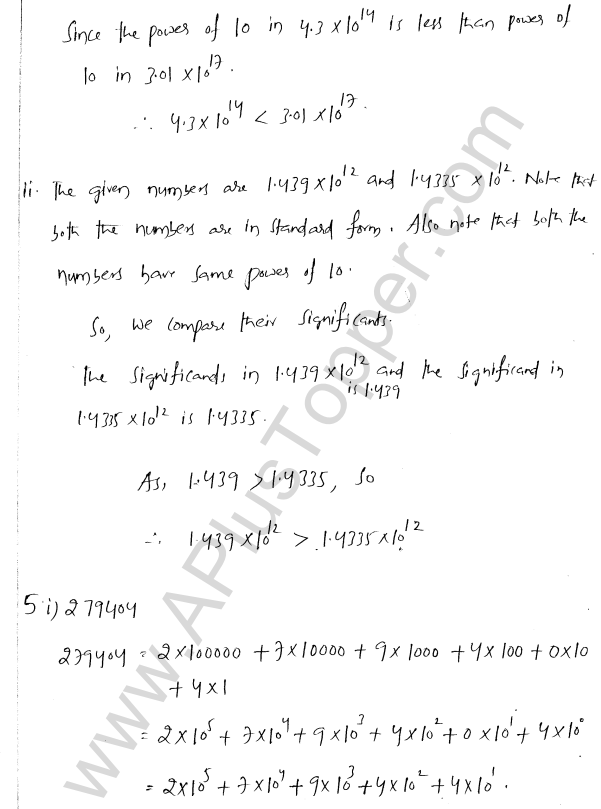 Since the power of 10 in 4.3 × 10^14 is less than power of
10 in 3.01 × 10^17.
∴ 4.3 × 10^14 < 3.01 × 10^17.
ii. The given numbers are 1.439 × 10^12 and 1.4335 × 10^12. Note that
both the numbers are in standard form. Also note that both the
numbers have same power of 10.
So, we compare their significants.
The significands in 1.439 × 10^12 is 1.439 and the significand in
1.4335 × 10^12 is 1.4335.
As, 1.439 > 1.4335, so
∴ 1.439 × 10^12 > 1.4335 × 10^12
5 i) 279404
279404 = 2 × 100000 + 7 × 10000 + 9 × 1000 + 4 × 100 + 0 × 10
+ 4 × 1
= 2 × 10^5 + 7 × 10^4 + 9 × 10^3 + 4 × 10^2 + 0 × 10^1 + 4 × 10^0
= 2 × 10^5 + 7 × 10^4 + 9 × 10^3 + 4 × 10^2 + 4 × 10^1.
www.APlusTopper.com